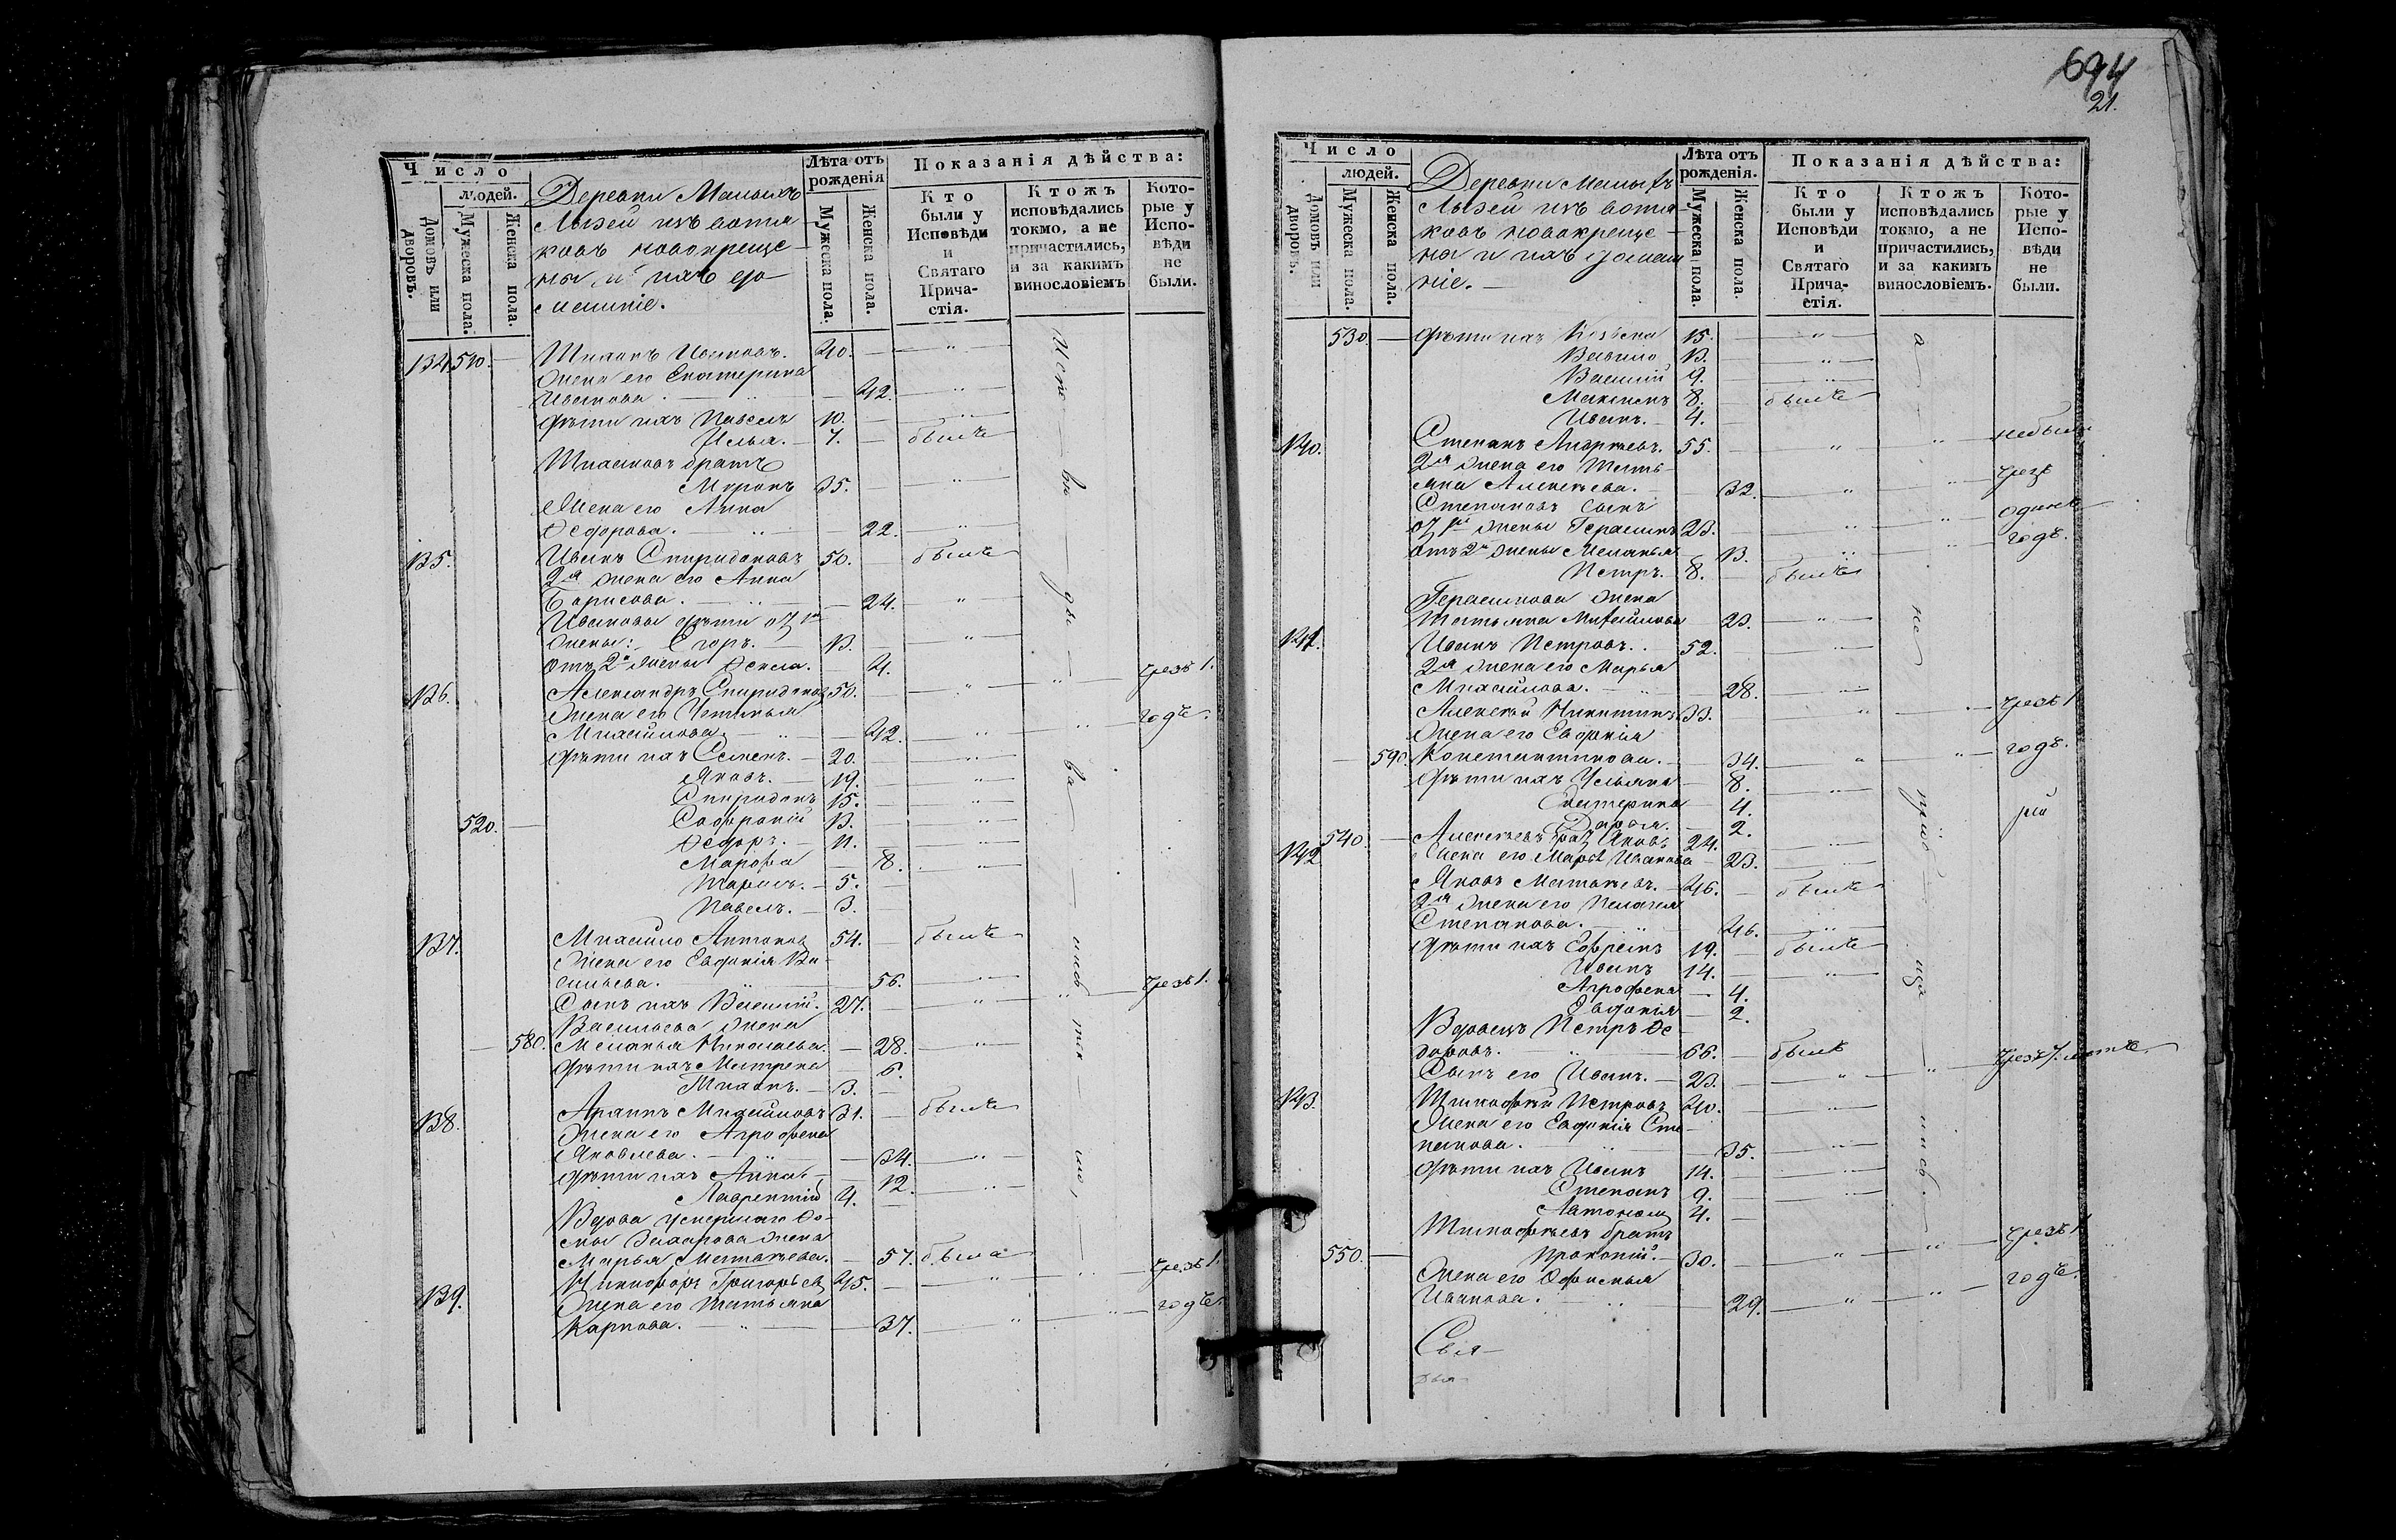 694
21.
Число
людей.
Домовъ или дворовъ.
Мужеска пола.
Женска пола.
Деревни Малыхъ
Лызей изъ вотя-
ковъ новокреще-
ны и ихъ до-
машніе.
Лѣта отъ рожденія
Мужеска пола.
Женска пола.
Показанія дѣйства:
Кто были у Исповѣди и Святаго Прича-стія.
Ктожъ исповѣдались токмо, а не причастились, и за какимъ винословіемъ
Кото-рые у Испо-вѣди не были.
134 510. Ивановъ. 40.
Жена его Екатерина
Иванова. 42.
Дѣти ихъ Павелъ 10.
Илья. 7. былъ
братъ
Миронъ 35.
Жена его Анна
Федорова. 22.
135. Иванъ Спиридоновъ 50. былъ
2я жена его Анна
Борисова. 24.
Ивановы дѣти отъ 1й
жены: Егоръ. 13.
Отъ 2й жены Фекла. 4.
136. Александръ Спиридоновъ 50. чрезъ 1.
Жена его
Михайлова. 42. годъ.
Дѣти ихъ Семенъ. 20.
Яковъ. 19.
Спиридонъ 15.
520. Софроній 13.
Федоръ. 11.
Марфа 8.
Тарасъ. 5.
Павелъ. 3.
137. Михайло Антонов 54. былъ
Жена его Евдокія Ва-
сильева. 56.
Сынъ ихъ Василій. 27. чрезъ 1.
Васильева жена
580. Меланья Николаева. 28.
Дѣти ихъ Матрена 6.
3.
138. Архипъ Михайловъ 31. былъ
Жена его Агрофена
Яковлева. 34.
Дѣти ихъ Анна 12.
Лаврентій 4.
Вдова умершаго Фо-
мы Захарова жена
Марья Матвѣева. 57. была
139. Никифоръ Григорьев 45. чрезъ 1.
Жена его Татьяна
Карпова. 37. годъ.
Число
людей.
Домовъ или дворовъ.
Мужеска пола.
Женска пола.
Деревни Малыхъ
Лызей изъ вотя-
ковъ новокреще-
ны и ихъ домаш
ніе.
Лѣта отъ рожденія.
Мужеска пола.
Женска пола.
Показанія дѣйства:
Кто были у Исповѣди и Святаго Прича-стія.
Ктожъ исповѣдались токмо, а не причастились, и за какимъ винословіемъ.
Кото-рые у Испо-вѣди не были.
530. Дѣти ихъ 15.
Вавило 13.
Василій 9.
Максимъ 8. былъ
Иванъ. 4.
140. Степанъ Андреевъ. 55. небыли
2я жена его Тать-
яна Алексѣева. 32. чрезъ
Степановъ сынъ
отъ 1й жены Герасимъ 23. одинъ
Отъ 2й жены Меланья 13. годъ.
Петръ. 8. былъ
Герасимова жена
Татьяна Михайлова 23.
141. Иванъ Петровъ. 52.
2я жена его Марья
Михайлова. 28.
Алексѣй Никитинъ 33. чрезъ 1
Жена его Евдокія
590. Константинова. 34. годъ.
Дѣти ихъ Ульяна 8.
Екатерина 4.
Дарья. 2.
540. Алексѣевъ братъ Яковъ 24.
Жена его Марья Иванова 23.
142 Яковъ Матвѣевъ. 46. былъ
2я жена его Пелагея
Степанова. 46.
Дѣти ихъ Ефремъ 19. былъ
Иванъ 14.
Агрофена 4.
Евдокія 2.
Вдовецъ Петръ Фе-
доровъ. 66. былъ
Сынъ его Иванъ. 23. чрезъ 7. лѣтъ
143. Тимофѣй Петровъ 40.
Жена его Евдокія Сте-
панова. 35.
Дѣти ихъ Иванъ 14.
Степанъ 9.
Автономъ 4.
Тимофѣевъ братъ
550. Прокопій. 30. чрезъ 1
Жена его Офимья
Иванова. 29. годъ.
Свя-